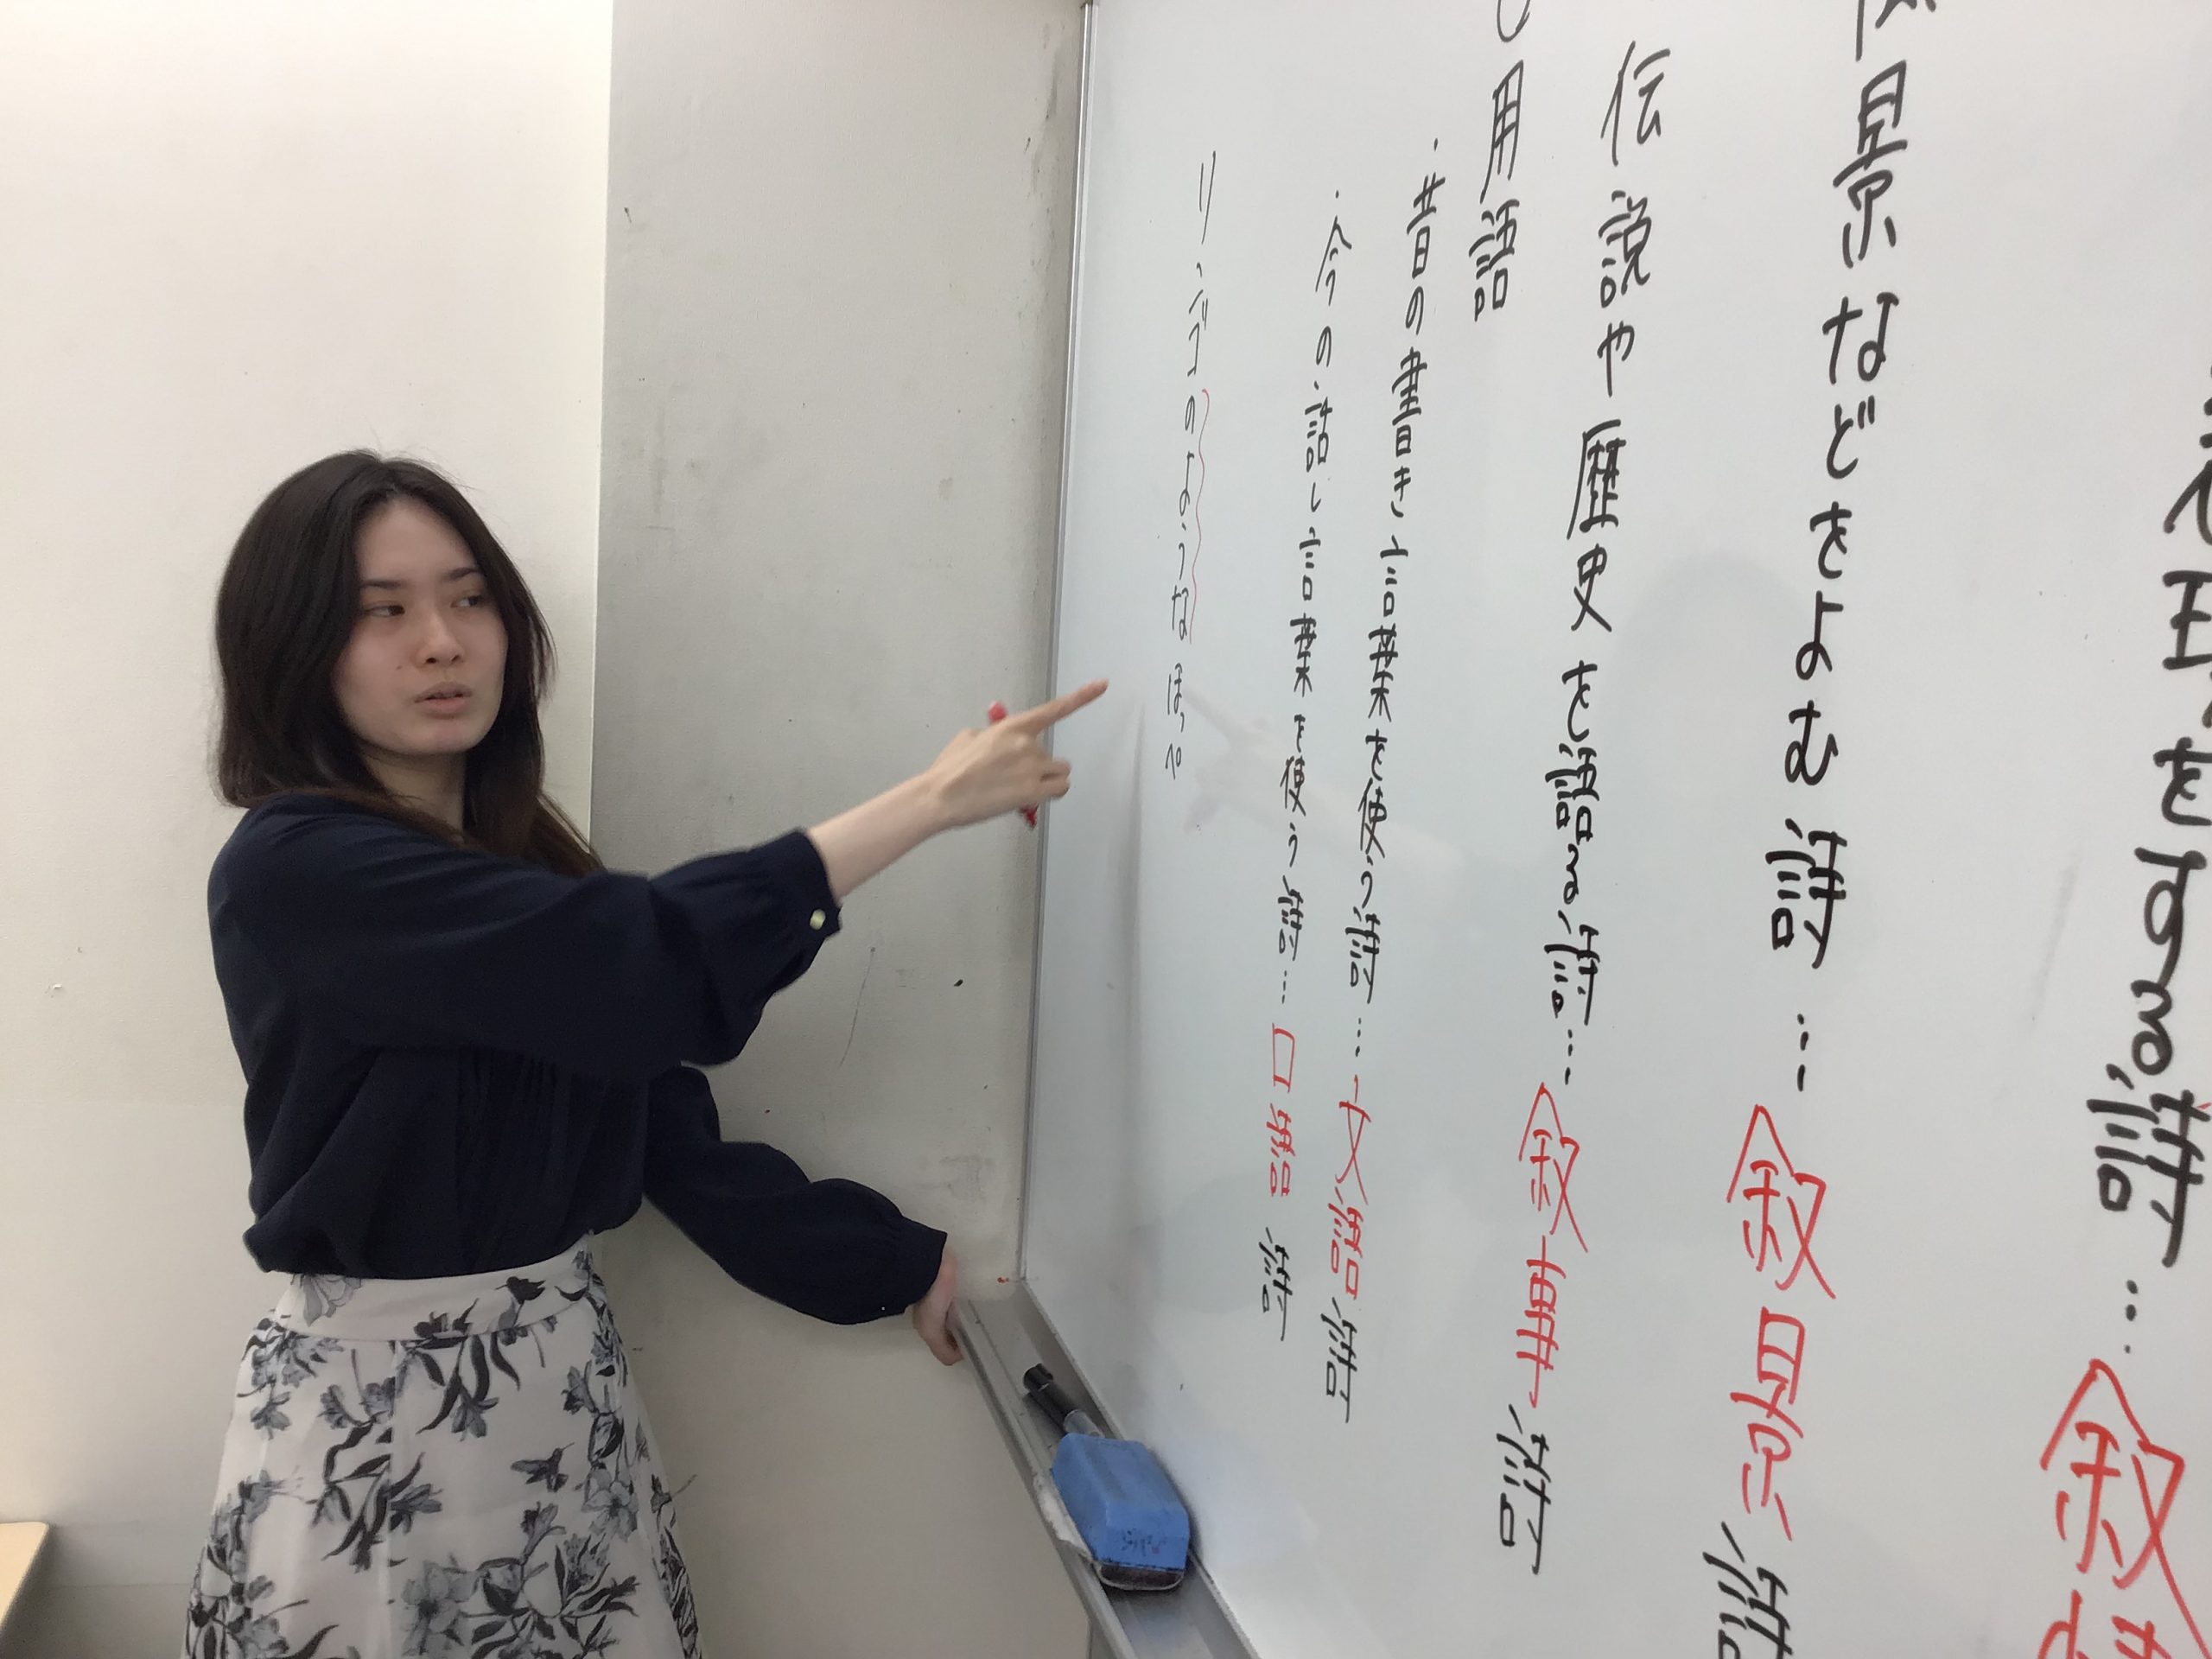 をよむ詩…叙
景などをよむ詩…叙景詩
伝説や歴史を語る詩…叙事詩
用語
・昔の書き言葉を使う詩…文語詩
・今の話し言葉を使う詩…口語詩
リンゴのようなほっぺ